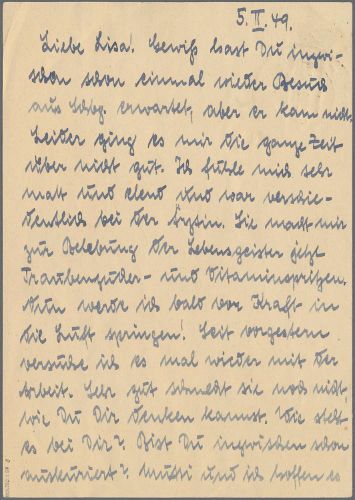 5. II. 49.
Liebe Lisa! Gewiß hast Du inzwi-
schen schon einmal wieder Besuch
aus Schbg. erwartet, aber er kam nicht.
Leider ging es mir die ganze Zeit
über nicht gut. Ich fühle mich sehr
matt und elend und war verschie-
dentlich bei der Ärztin. Sie macht mir
zur Belebung der Lebensgeister jetzt
Traubenzucker- und Vitaminspritzen.
Nun werde ich bald vor Kraft in
die Luft springen! Seit vorgestern
versuche ich es mal wieder mit der
Arbeit. Sehr gut schmeckt sie noch nicht,
wie Du Dir denken kannst. Wie steht
es bei Dir? Bist Du inzwischen schon
auskuriert? Mutti und ich hoffen es